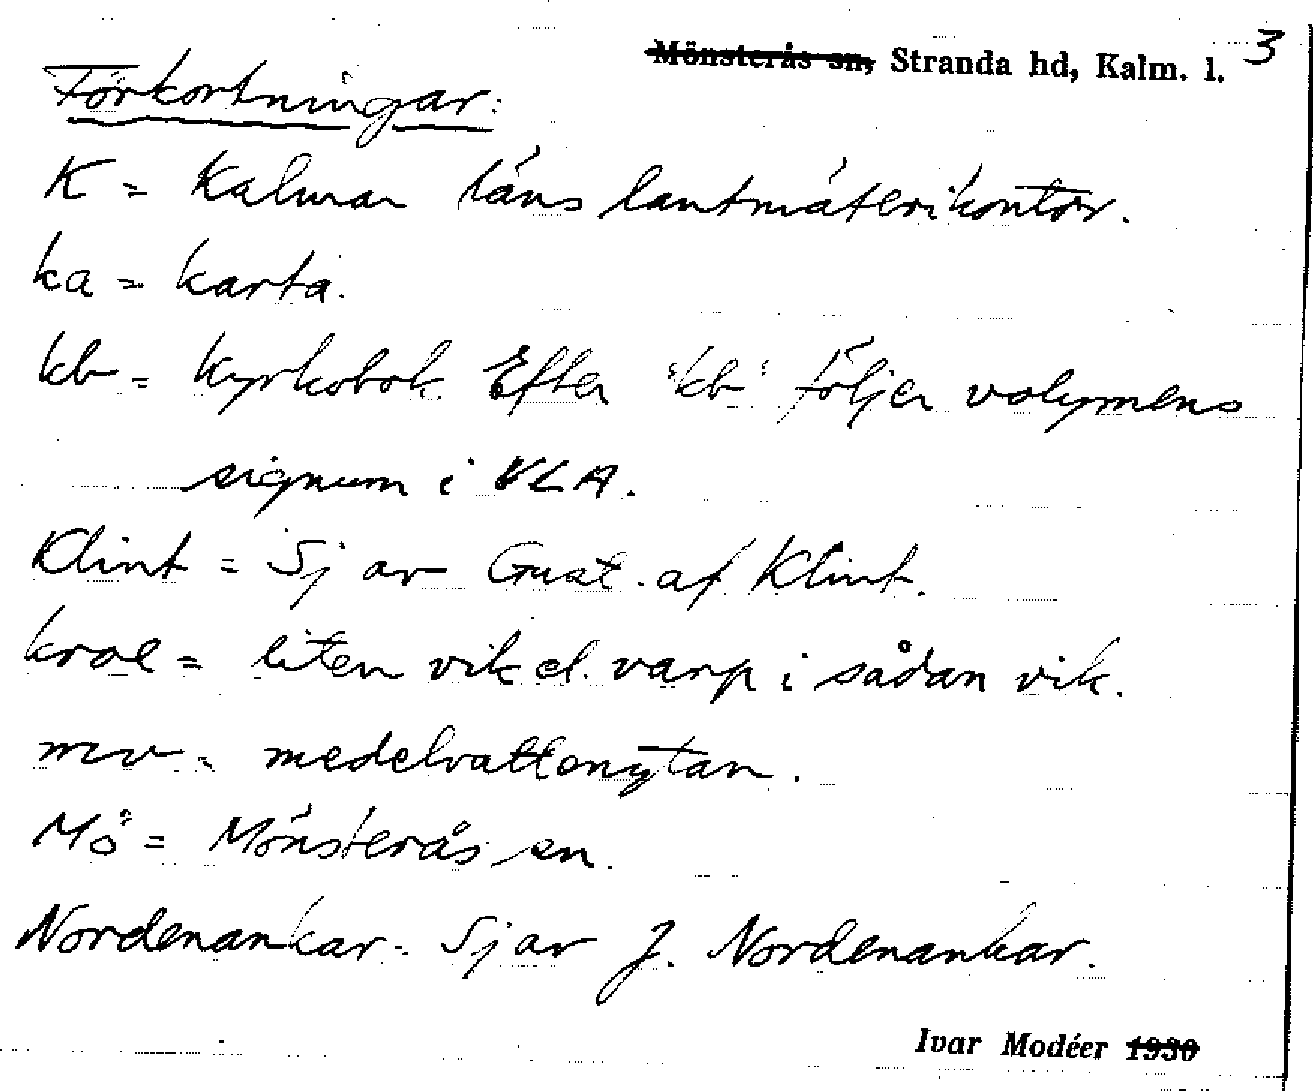 Mönsterås sn, Stranda hd, Kalm. l. 3
Förkortningar:
K = Kalmar läns lantmäterikontor.
ka = karta.
kb = kyrkobok. Efter "kb" följer volymens
signum i VLA.
Klint = Sj av Gust. af Klint.
kroe = liten vik el. varp i sådan vik.
mv = medelvattenytan.
Mö = Mönsterås sn.
Nordenankar = Sj av J. Nordenankar.
Ivar Modéer 1930